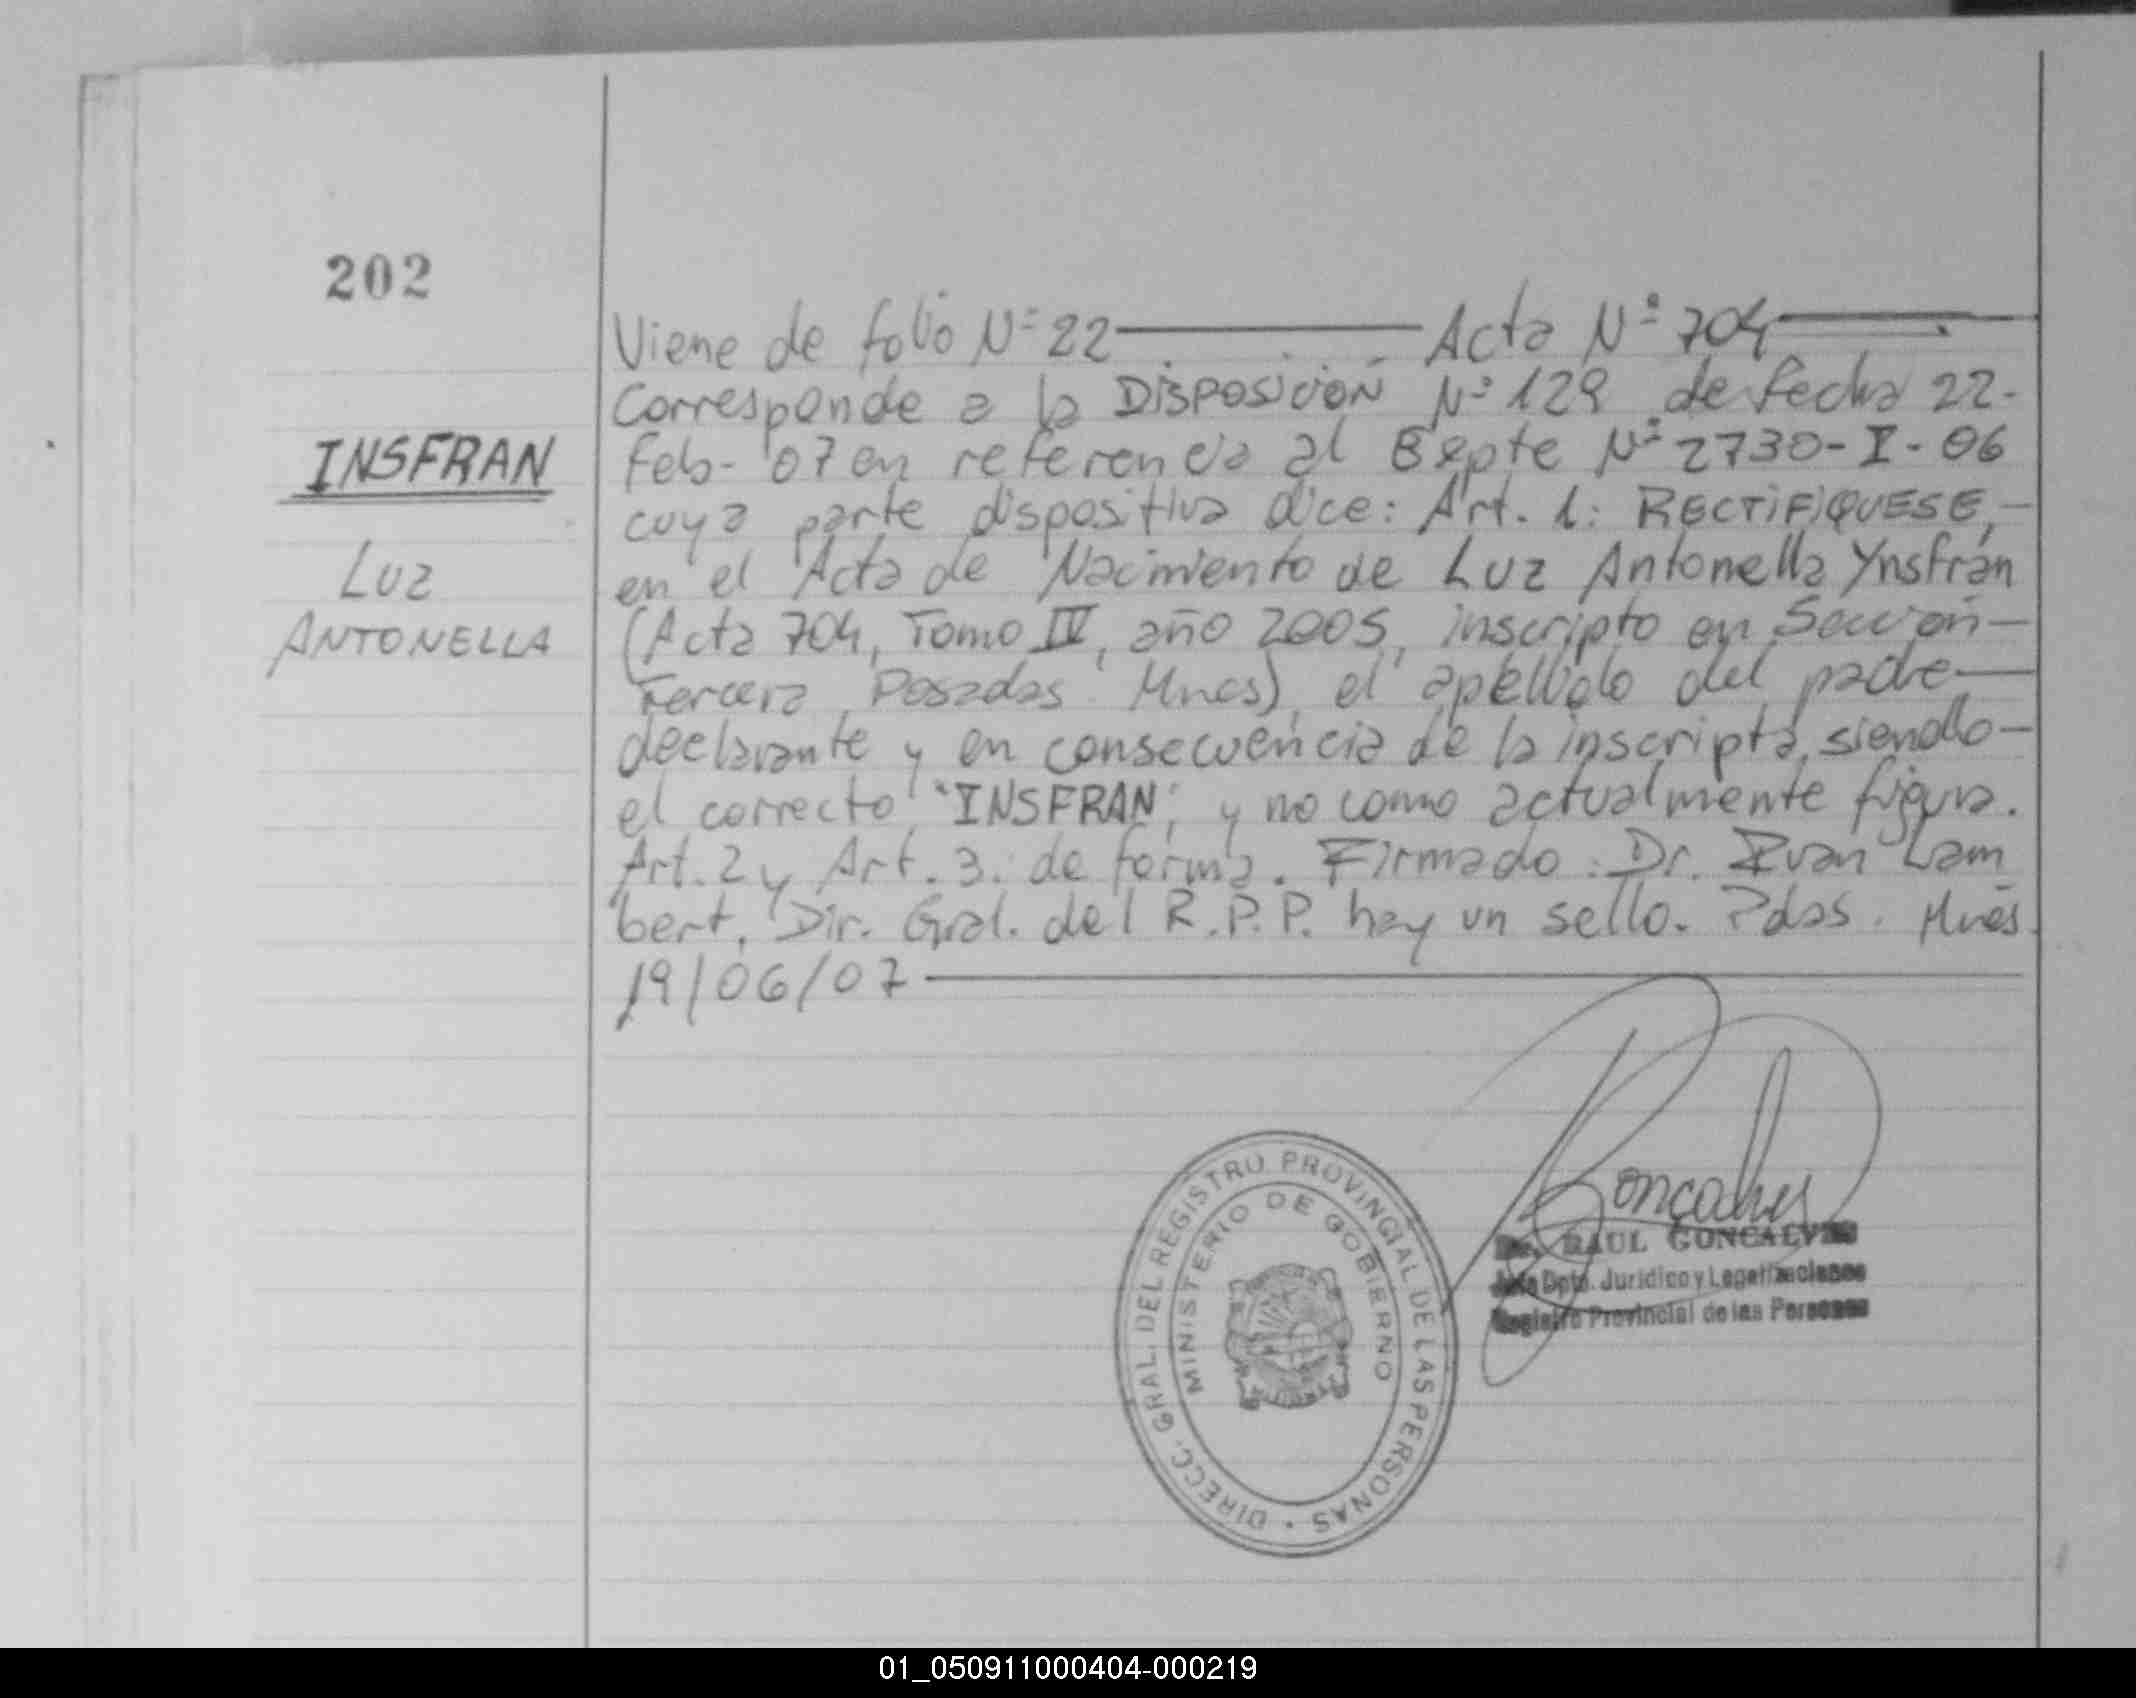 202
Viene de folio Nº 22 ——— Acta Nº 704 ———
Corresponde a la DISPOSICIÓN Nº 129 de fecha 22-
INSFRAN
Feb-07 en referencia al Expte Nº 2730-I-06
cuya parte dispositiva dice: Art. 1: RECTIFIQUESE,—
en el Acta de Nacimiento de Luz Antonella Ynsfrán
LUZ
ANTONELLA
(Acta 704, Tomo IV, año 2005, inscripto en Sección—
Tercera Posadas Mnes), el apellido del padre—
declarante y en consecuencia de la inscripta, siendo—
el correcto "INSFRAN", y no como actualmente figura.
Art. 2 y Art. 3: de forma. Firmado: Dr. Ivan Lam
bert, Dir. Gral. del R.P.P. hay un sello. Pdas. Mnes.
19/06/07 ———
DIRECC. GRAL. DEL REGISTRO PROVINCIAL DE LAS PERSONAS
MINISTERIO DE GOBIERNO
Goncalves
Dr. RAUL GONCALVES
Jefe Dpto. Jurídico y Legalizaciones
Registro Provincial de las Personas
01_050911000404-000219